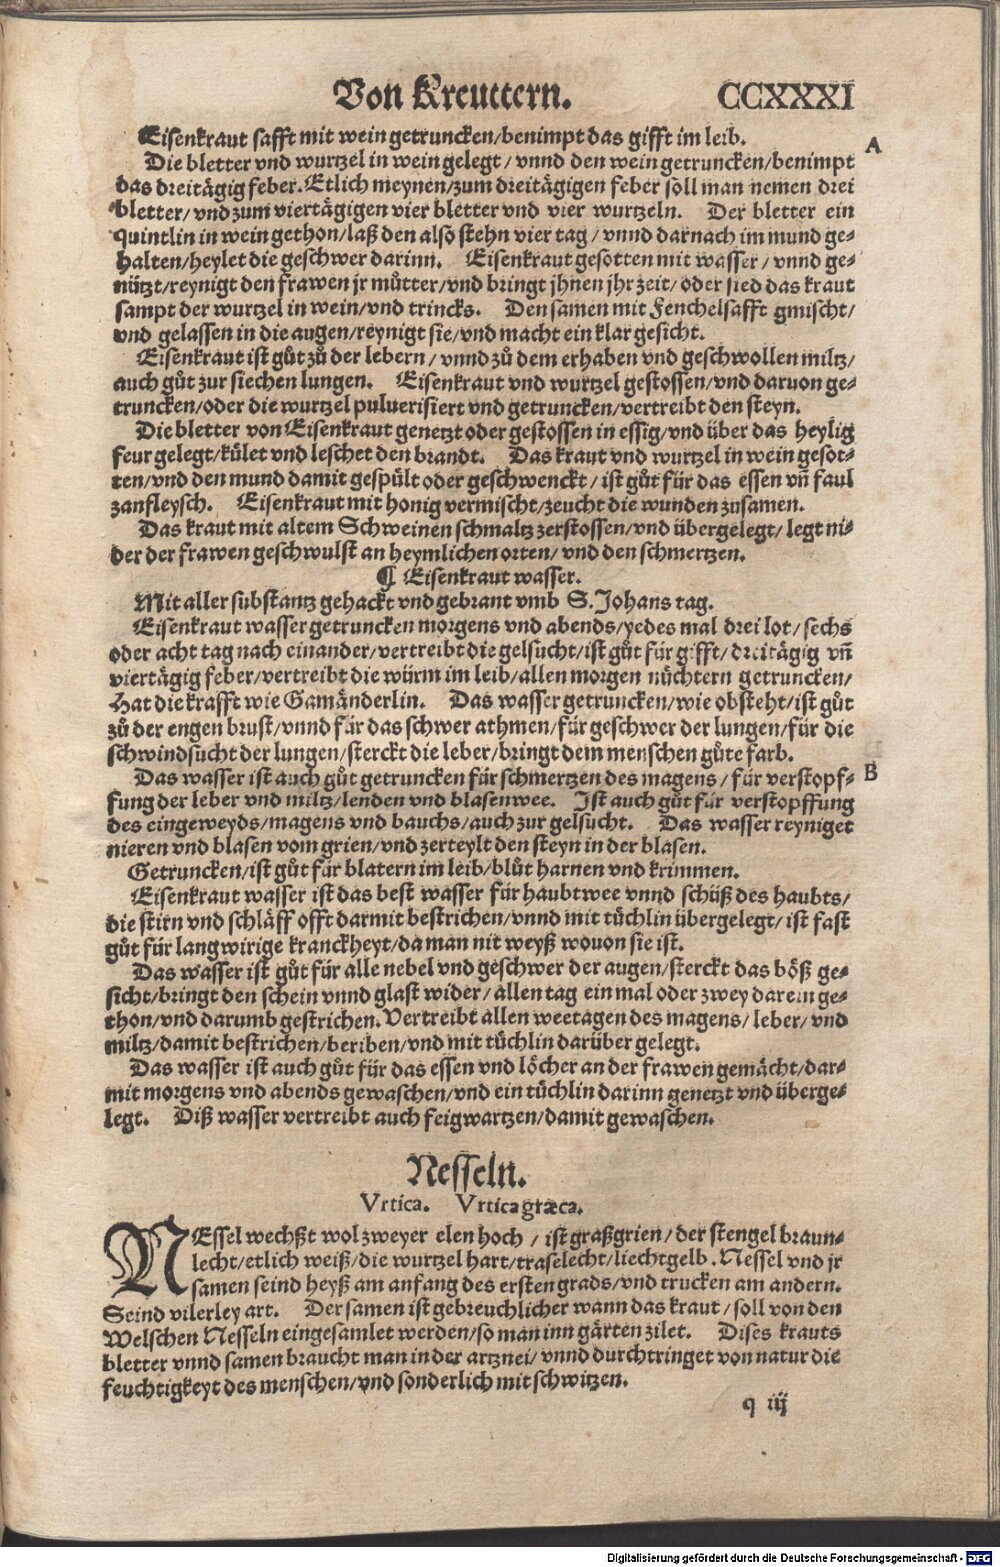 Von Kreuttern. CCXXXI
Eisenkraut safft mit wein getruncken/benimpt das gifft im leib.
A
Die bletter vnd wurtzel in wein gelegt/vnnd den wein getruncken/benimpt
das dreitägig feber. Etlich meynen/zum dreitägigen feber soll man nemen drei
bletter/vnd zum viertägigen vier bletter vnd vier wurtzeln. Der bletter ein
quintlin in wein gethon/laß den also stehn vier tag/vnnd darnach im mund ge-
halten/heylet die geschwer darinn. Eisenkraut gesotten mit wasser/vnnd ge-
nützt/reynigt den frawen jr můtter/vnd bringt jhnen jhr zeit/oder sied das kraut
sampt der wurtzel in wein/vnd trincks. Den samen mit Fenchelsafft gmischt/
vnd gelassen in die augen/reynigt sie/vnd macht ein klar gesicht.
Eisenkraut ist gůt zů der lebern/vnnd zů dem erhaben vnd geschwollen miltz/
auch gůt zur siechen lungen. Eisenkraut vnd wurtzel gestossen/vnd daruon ge-
truncken/oder die wurtzel puluerisiert vnd getruncken/vertreibt den steyn.
Die bletter von Eisenkraut genetzt oder gestossen in essig/vnd über das heylig
feur gelegt/kület vnd leschet den brandt. Das kraut vnd wurtzel in wein gesot-
ten/vnd den mund damit gespült oder geschwenckt/ist gůt für das essen vñ faul
zanfleysch. Eisenkraut mit honig vermischt/zeucht die wunden zusamen.
Das kraut mit altem Schweinen schmaltz zerstossen/vnd übergelegt/legt ni-
der der frawen geschwulst an heymlichen orten/vnd den schmertzen.
¶ Eisenkraut wasser.
Mit aller substantz gehackt vnd gebrant vmb S. Johans tag.
Eisenkraut wasser getruncken morgens vnd abends/yedes mal drei lot/sechs
oder acht tag nach einander/vertreibt die gelsucht/ist gůt für gifft/dreitägig vñ
viertägig feber/vertreibt die würm im leib/allen morgen nüchtern getruncken/
Hat die krafft wie Gamänderlin. Das wasser getruncken/wie obsteht/ist gůt
zů der engen brust/vnnd für das schwer athmen/für geschwer der lungen/für die
schwindsucht der lungen/sterckt die leber/bringt dem menschen gůte farb.
B
Das wasser ist auch gůt getruncken für schmertzen des magens/für verstopf-
fung der leber vnd miltz/lenden vnd blasenwee. Ist auch gůt für verstopffung
des eingeweyds/magens vnd bauchs/auch zur gelsucht. Das wasser reyniget
nieren vnd blasen vom grien/vnd zerteylt den steyn in der blasen.
Getruncken/ist gůt für blatern im leib/blůt harnen vnd krimmen.
Eisenkraut wasser ist das best wasser für haubtwee vnnd schüß des haubts/
die stirn vnd schläff offt darmit bestrichen/vnnd mit tüchlin übergelegt/ist fast
gůt für langwirige kranckheyt/da man nit weyß wouon sie ist.
Das wasser ist gůt für alle nebel vnd geschwer der augen/sterckt das böß ge-
sicht/bringt den schein vnnd glast wider/allen tag ein mal oder zwey darein ge-
thon/vnd darumb gestrichen. Vertreibt allen weetagen des magens/leber/vnd
miltz/damit bestrichen/beriben/vnd mit tüchlin darüber gelegt.
Das wasser ist auch gůt für das essen vnd löcher an der frawen gemächt/dar-
mit morgens vnd abends gewaschen/vnd ein tüchlin darinn genetzt vnd überge-
legt. Diß wasser vertreibt auch feigwartzen/damit gewaschen.
Nesseln.
Vrtica. Vrtica græca.
NEssel wechßt wol zweyer elen hoch/ist graßgrien/der stengel braun-
lecht/etlich weiß/die wurtzel hart/traselecht/liechtgelb. Nessel vnd jr
samen seind heyß am anfang des ersten grads/vnd trucken am andern.
Seind vilerley art. Der samen ist gebreuchlicher wann das kraut/soll von den
Welschen Nesseln eingesamlet werden/so man inn gärten zilet. Dises krauts
bletter vnnd samen braucht man in der artznei/vnnd durchtringet von natur die
feuchtigkeyt des menschen/vnd sonderlich mit schwitzen.
q iij
Digitalisierung gefördert durch die Deutsche Forschungsgemeinschaft - DFG